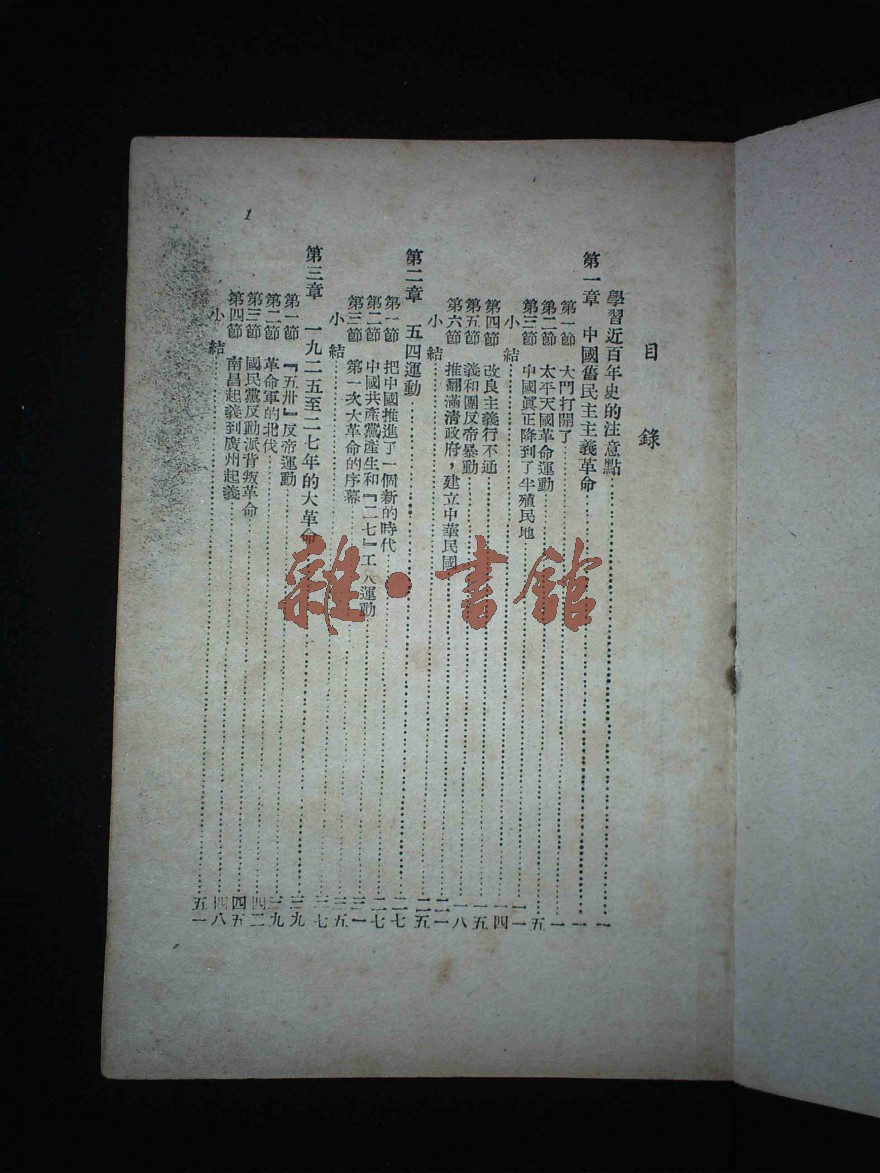 目錄
學習近百年史的注意點……一
第一章 中國舊民主主義革命……一
第一節 大門打開了……一
第二節 太平天國革命運動……五
第三節 中國眞正降到了半殖民地……一一
小結……一四
第四節 改良主義行不通……一五
第五節 義和團反帝暴動……一八
第六節 推翻滿清政府,建立中華民國……二一
小結……二五
第二章 五四運動……二七
第一節 把中國推進了一個新的時代……二七
第二節 中國共產黨產生和『二七』工人運動……三一
第三節 第一次大革命的序幕……三五
小結……三七
第三章 一九二五至二七年的大革命……三九
第一節 『五卅』反帝運動……三九
第二節 革命軍的北伐……四二
第三節 國民黨反動派背叛革命……四五
第四節 南昌起義到廣州起義……四八
小結……五一
1
雜·書館